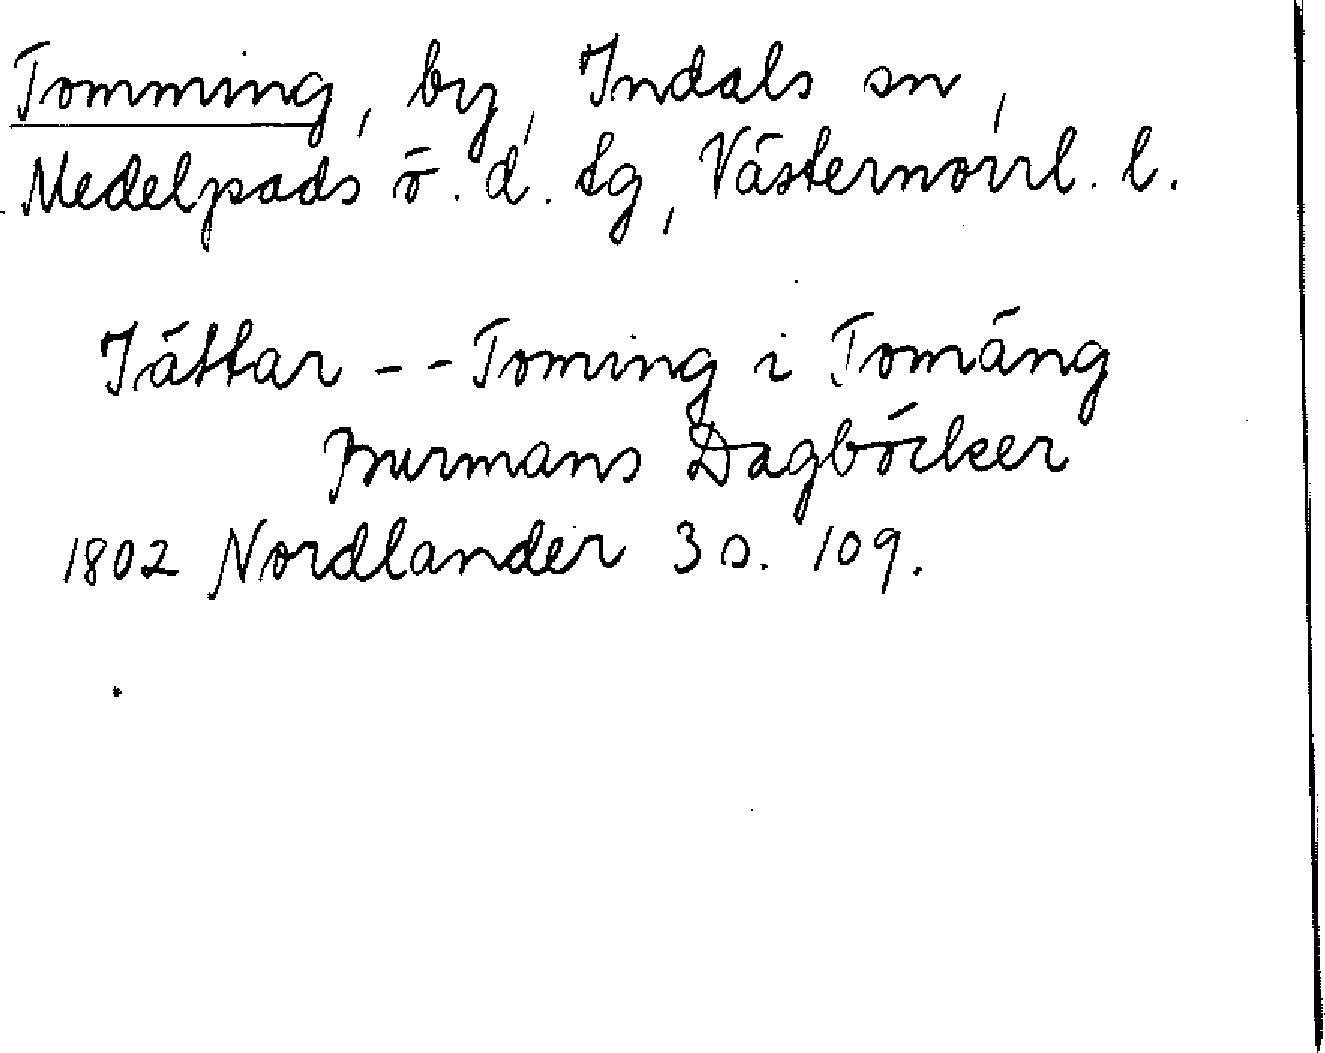 Tomming, by, Indals sn,
Medelpads ö. d. tg, Västernorrl. l.
Jättar -- Toming i Tomäng
Burmans Dagböcker
1802 Nordlander 3 s. 109.